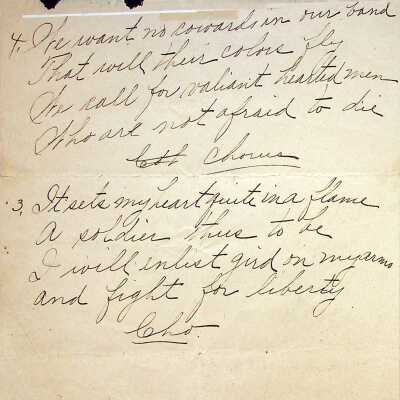 4. We want no cowards in our band
That will their colors fly
We call for valiant hearted men
Who are not afraid to die
Chorus
3. It sets my heart quite in a flame
A soldier thus to be
I will enlist gird on my arms
and fight for liberty
Cho